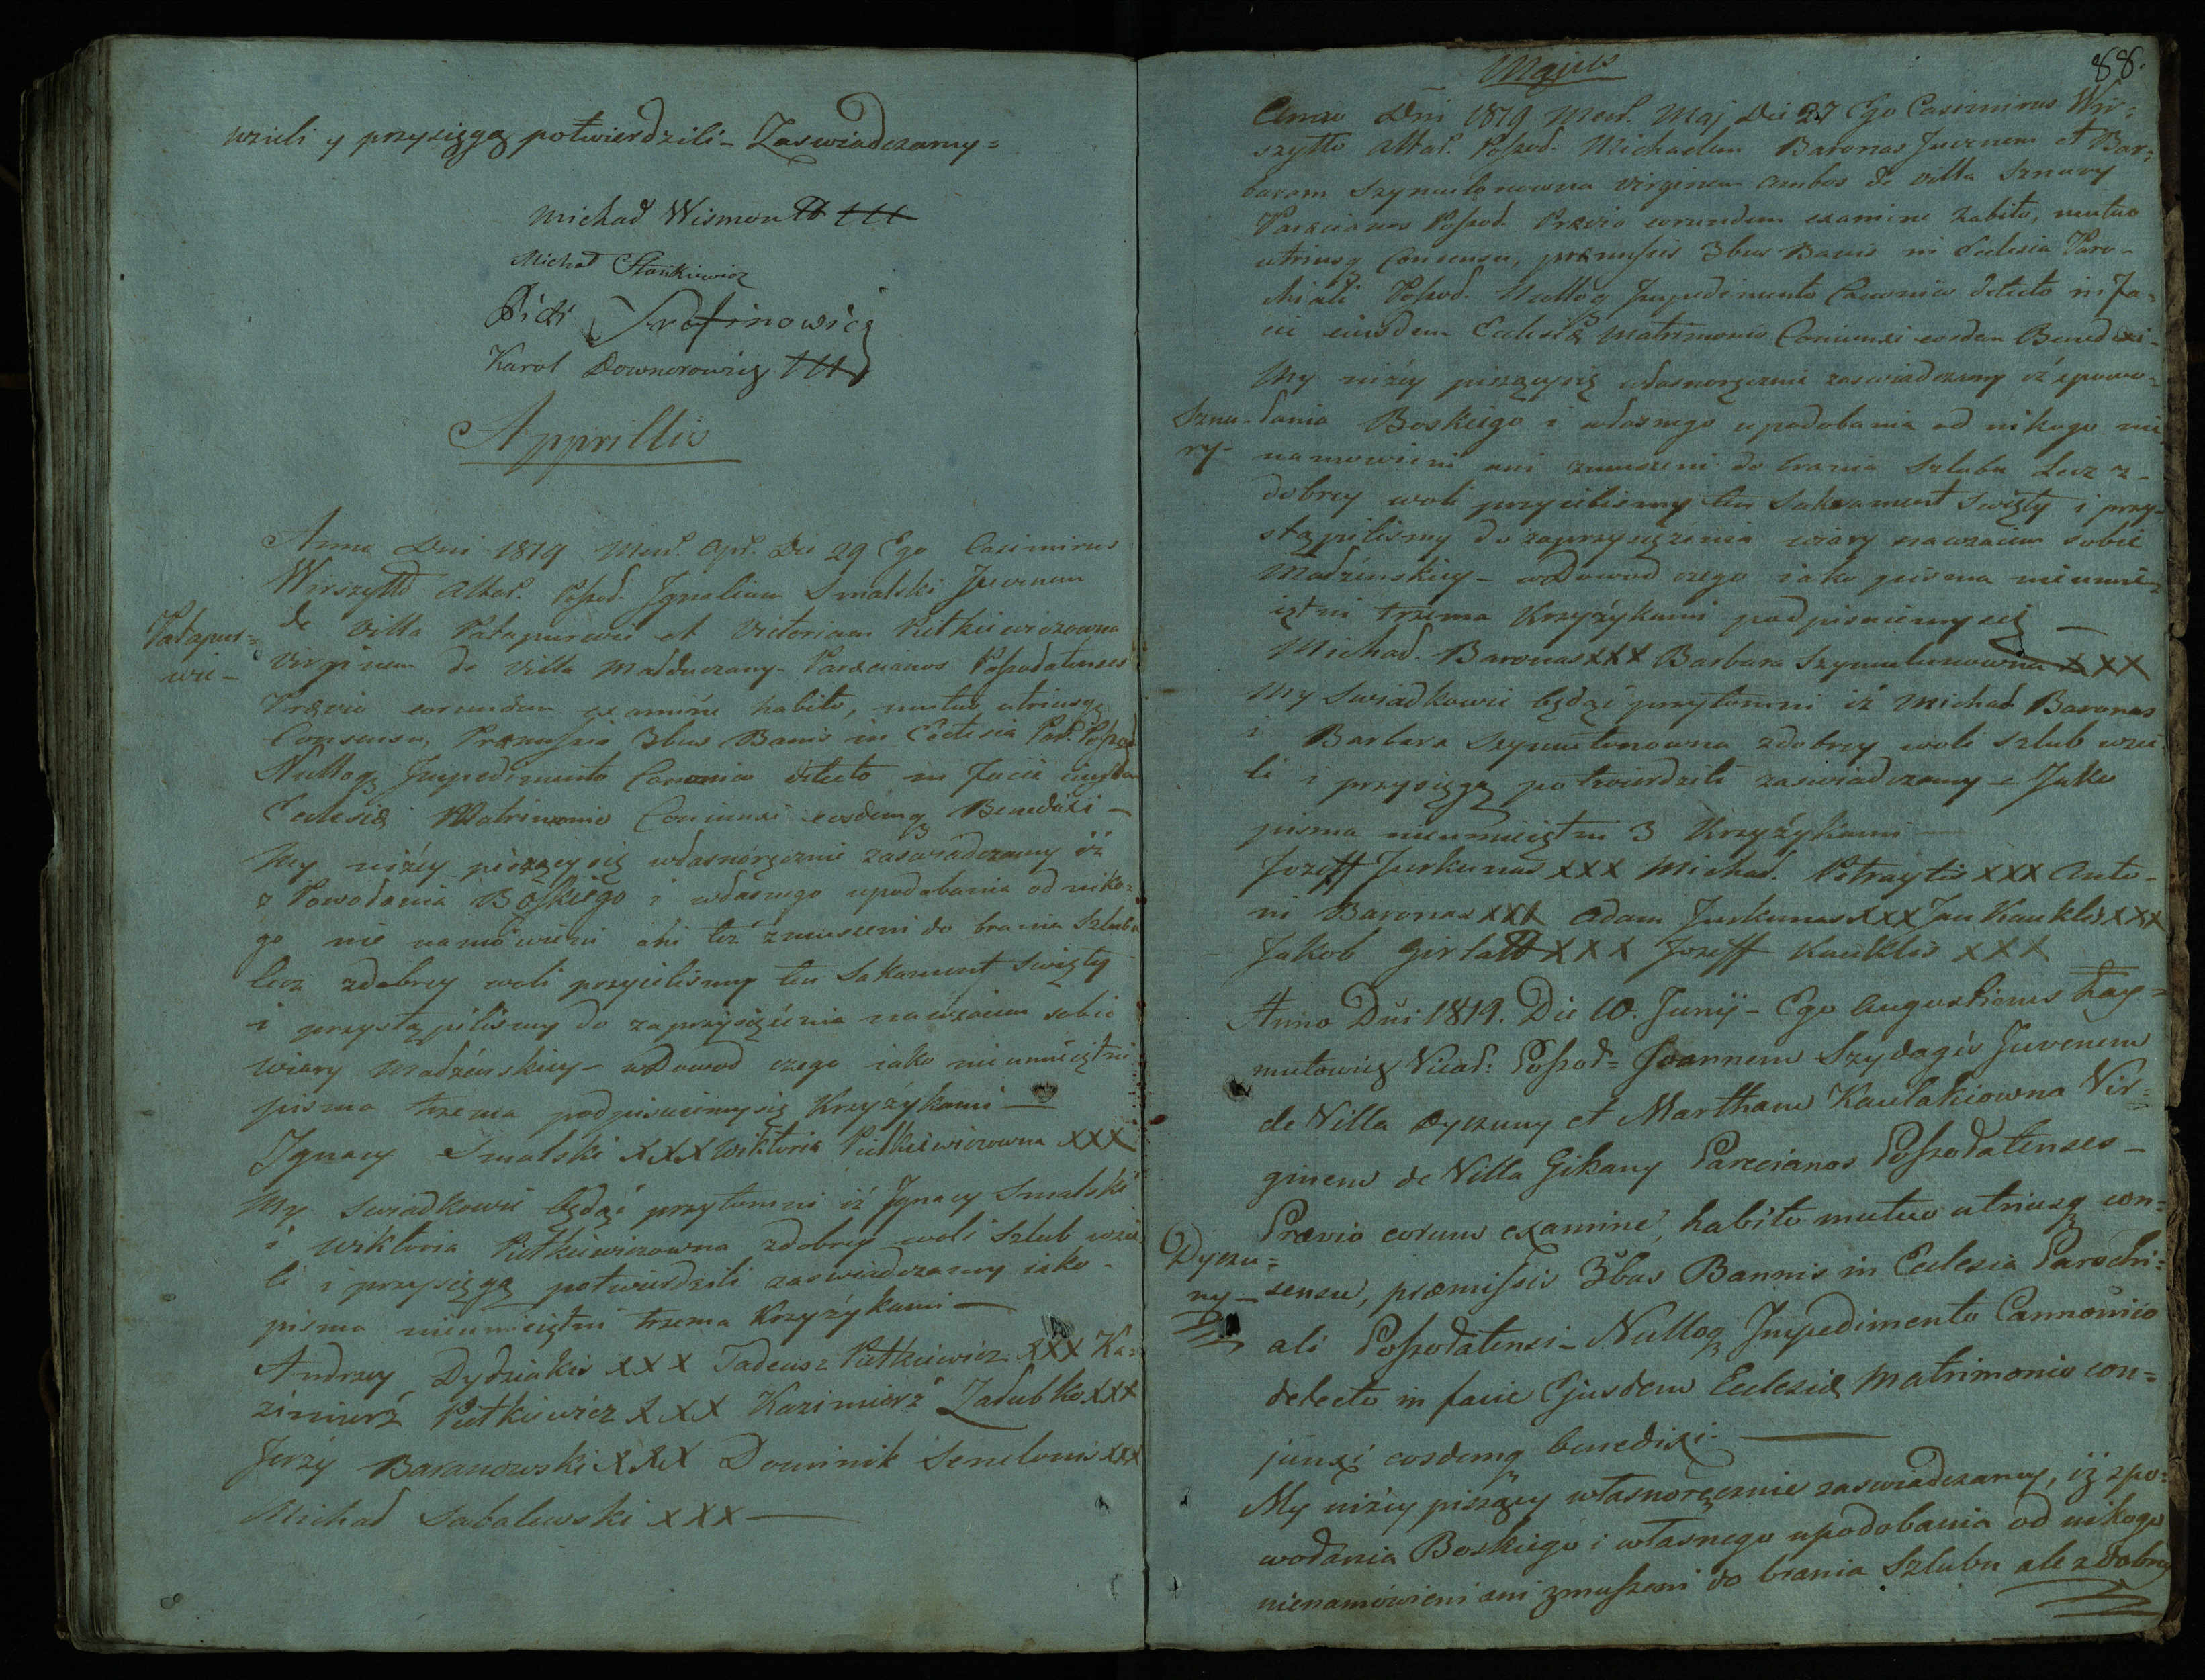 wzieli y przysięgą potwierdzili - Zaswiadczamy =
Michał Wismontt +++
Michał Stankiewicz
Karol Downorowicz +++
Apprillis
Anno Dni 1819 Men. Apr. Die 29 Ego Casimirus
Wirszyłło Altar. Poszod. Ignatium Smalski Juvenem
Patapur=
wie -
de Villa Patapurwie et Victoriam Pietkiewiczowna
Virginem de Villa Malduczany - Paræcianos Poszodatenses
Prævio eorundem examine habito, mutuo utriusq
Consensu, Præmissis 3bus Bannis in Ecclesia Par. Poszod
Nulloq Impedimento Canonico detecto in facie eiusdem
Ecclesiæ Matrimonio Coniunxi eosdemq Benedixi -
My niżey piszący się własnoręcznie zaswiadczamy iż
z Powołania Boskiego i własnego upodobania od niko=
go nie namówieni ani też zmuszeni do brania Szlubu
lecz zdobrey woli przyielismy ten Sakrament swięty
i przystąpilismy do zaprzysiężenia nawzaiem sobie
wiary Małżenskiey - wDowod czego iako nieumieiętni
pisma trzema podpisuiemysię Krzyżykami -
Ignacy Smalski XXX Wiktoria Pietkiewiczowna XXX
My swiadkowie będąć przytomni iż Ignacy Smalski
i Wiktoria Pietkiewiczowna zdobrey woli szlub wzie
li i przysięgą potwierdzili zaswiadczamy iako -
pisma nieumieiętni trzema Krzyżykami -
Andrzey Dydziakis XXX Tadeusz Pietkiewicz XXX Ka=
zimierz Pietkiewicz XXX Kazimierz Zalubko XXX
Jerzy Baranowski XXX Dominik XXX
Michał Sabalewski XXX -
88.
Majus
Anno Dni 1819 Men. Maj Die 27 Ego Casimirus Wir=
szyłło Altar. Poszod. Michaelem Baronas Juvenem et Bar=
baram Szymulonowna virginem ambos de villa Sznury
Paræcianos Poszod. Prævio eorundem examine habito, mutuo
utriusq Consensu, præmissis 3bus Banis in Ecclesia Paro-
chiali Poszod. Nulloq Impedimento Canonico detecto in fa=
cie eiusdem Ecclesiæ Matrimonio Coniunxi eosdem Benedixi -
My niżey piszącysię własnoręcznie zaswiadczamy iż zpowo=
Sznu-
ry-
łania Boskiego i własnego upodobania od nikogo nie
namowieni ani zmuszeni do brania Szlubu Lecz z -
dobrey woli przyielismy ten Sakrament Swięty i przy=
stąpilismy do zaprzysiężenia wiary nawzaiem sobie
Małżenskiey - wDowod czego iako pisma nieumie=
iętni trzema Krzyżykami podpisuiemy się
Michał. Baronas XXX Barbara Szymulonowna XXX
My Swiadkowie będąć przytomni iż Michał Baronas
i Barbara Szymulonowna zdobrey woli szlub wzie
li i przysięgą potwierdzili zaswiadczamy - Jako
pisma nieumieiętni 3 Krzyżykami -
Jozeff Jurkunas XXX Michał. Petraytis XXX Anto-
ni Baronas XXX Adam Jurkunas XXX Jan Kauklis XXX
Jakob Girłatt XXX Jozeff Kauklis XXX
Anno Dni 1819. Die 10. Junij - Ego Augustinus Hay=
mutowicz Vicar: Poszod= Joannem Szydagis Juvenem
de Villa Dyczuny et Martham Kaulakiowna Vir=
ginem de Villa Gikany Parecianos Poszodatenses -
Prævio eorum examine, habito mutuo utriusq con=
Dyczu=
ny -
sensu, præmissis 3bus Bannis in Ecclesia Parochi=
ali Poszodatensi - Nulloq Impedimento Cannonico
detecto in facie Ejusdem Ecclesiæ Matrimonio con=
junxi eosdemq benedixi. -
My niżey piszący własnoręcznie zaswiadczamy, iż zpo=
wołania Boskiego i własnego upodobania od nikogo
nienamówieni ani zmuszeni do brania Szlubu ale z dobrey